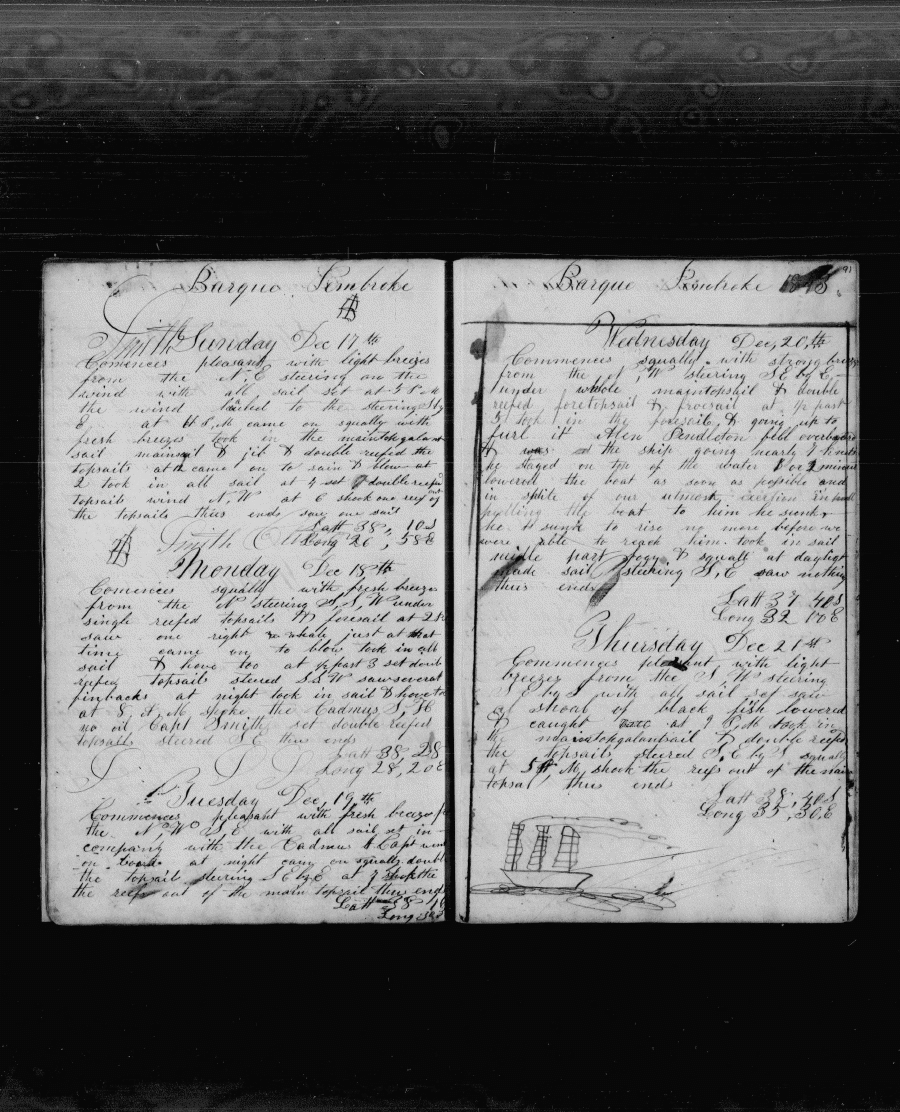 Barque Pembroke
Smith Sunday Dec 17th
Comences pleasant with light breezes
from the N, E steering on the
wind with all sail set at 5 P M
the wind to the steering S by
E at 11 P, M came on squally with
fresh breezes took in the maintopgalant
sail mainsail & jib & double reefed the
topsails at came on to rain & blow at
2 took in all sail at 4 set double reefed
topsails wind N, W at 6 shook one reef out of
the topsails thus ends saw one sail
Latt 38, 10 S
Smith Long 26, 58 E
Monday Dec 18th
Comences squally with fresh breeze
from the N steering S, S, W under
single reefed topsails & foresail at 2
saw one right whale just at that
time came on to blow took in all
sail & hove too at 1/2 part 3 set doub
reefed topsails steered S S W saw several
finbacks at night took in sail & hove to
at 8 A, M spoke the Cadmus S, H
no oil Capt Smith set double reefed
topsails steered S E thus ends
Latt 38, 28
Long 28, 20 E
Tuesday Dec, 19th
Commences pleasant with fresh breezes f
the N, W S, E with all sail set in
company with the Cadmus & Capt went
on board at night came on squally doubl
the topsail steering S E by E at 7 shook the
the reefs out of the main topsail thus end
Latt 38 16
Long
Barque Pembroke 1843
91
Wednisday Dec, 20, th
Commences squally with strong breezes
from the N, W steering S E by E
under whole maintopsail & double
reefed foretopsail & foresail at 1/2 past
5 took in the foresail & going up to
furl it Allen Pendleton fell overboard
& was the ship going nearly 7 knots
he staged on top of the water 1 or 2 minutes
lowered the boat as soon as possible and
in splite of our utmost exertion in
pulling the boat to him he sunk
he sunk to rise no more before we
were able to reach him took in sail
middle part fogy & squall at daylight
made sail steering S, E saw nothing
thus ends
Latt 37 40 S
Long 32 00 E
Thursday Dec 21st
Commences pleasant, with light
breezes from the S W steering
S E by S with all sail set saw
a shoal of black fish lowered
& caught at 9 P, M took in
the maintopgalantsail & double reefed
the topsails steered S, E by S squall
at 5 A, M, shook the reefs out of the main
topsal thus ends
Latt 38, 40 S
Long 35, 30, E